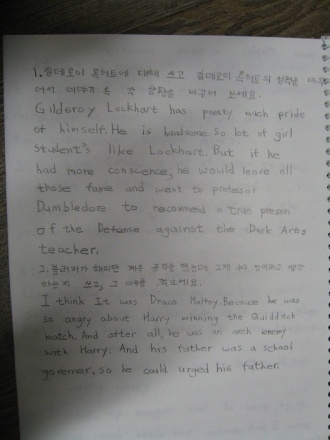 1. 길데로이 록허트에 대해 쓰고 길데로이 록허트의 성격을 바꾸
어서 이야기 속 상황을 바꾸어 보세요.
Gilderoy Lockhart has preaty much pride
of himself. He is handsome. So lot of girl
student's like Lockhart. But if he
had more conscence, he would leave all
those fame and went to professor
Dumbledore to recomend a true preson
of the Defense against the Dark Arts
teacher.
2. 블러저가 해리만 계속 공격을 했는데 그게 누가 했다고 생각
하는지 쓰고, 그 이유를 적으세요.
I think It was Draco Malfoy. Because he was
so angry about Harry winning the Quidditch
match. And after all, he was an arch enemy
with Harry. And his father was a school
governer, so he could urged his father.